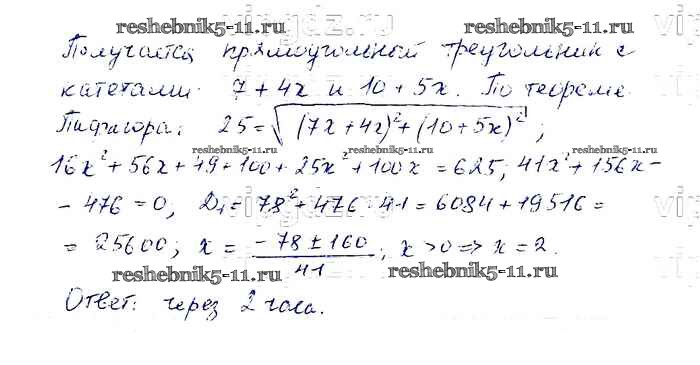 reshebnik5-11.ru
reshebnik5-11.ru
Получается прямоугольный треугольник с
катетами 7 + 4x и 10 + 5x. По теореме
Пифагора: 25 = √(7x + 4x)² + (10 + 5x)² ;
reshebnik5-11.ru
reshebnik5-11.ru
16x² + 56x + 49 + 100 + 25x² + 100x = 625; 41x² + 156x -
- 476 = 0; D₁ = 78² + 476 · 41 = 6084 + 19516 =
= 25600; x = (-78 ± 160)/41; x > 0 => x = 2.
reshebnik5-11.ru
reshebnik5-11.ru
Ответ: через 2 часа.